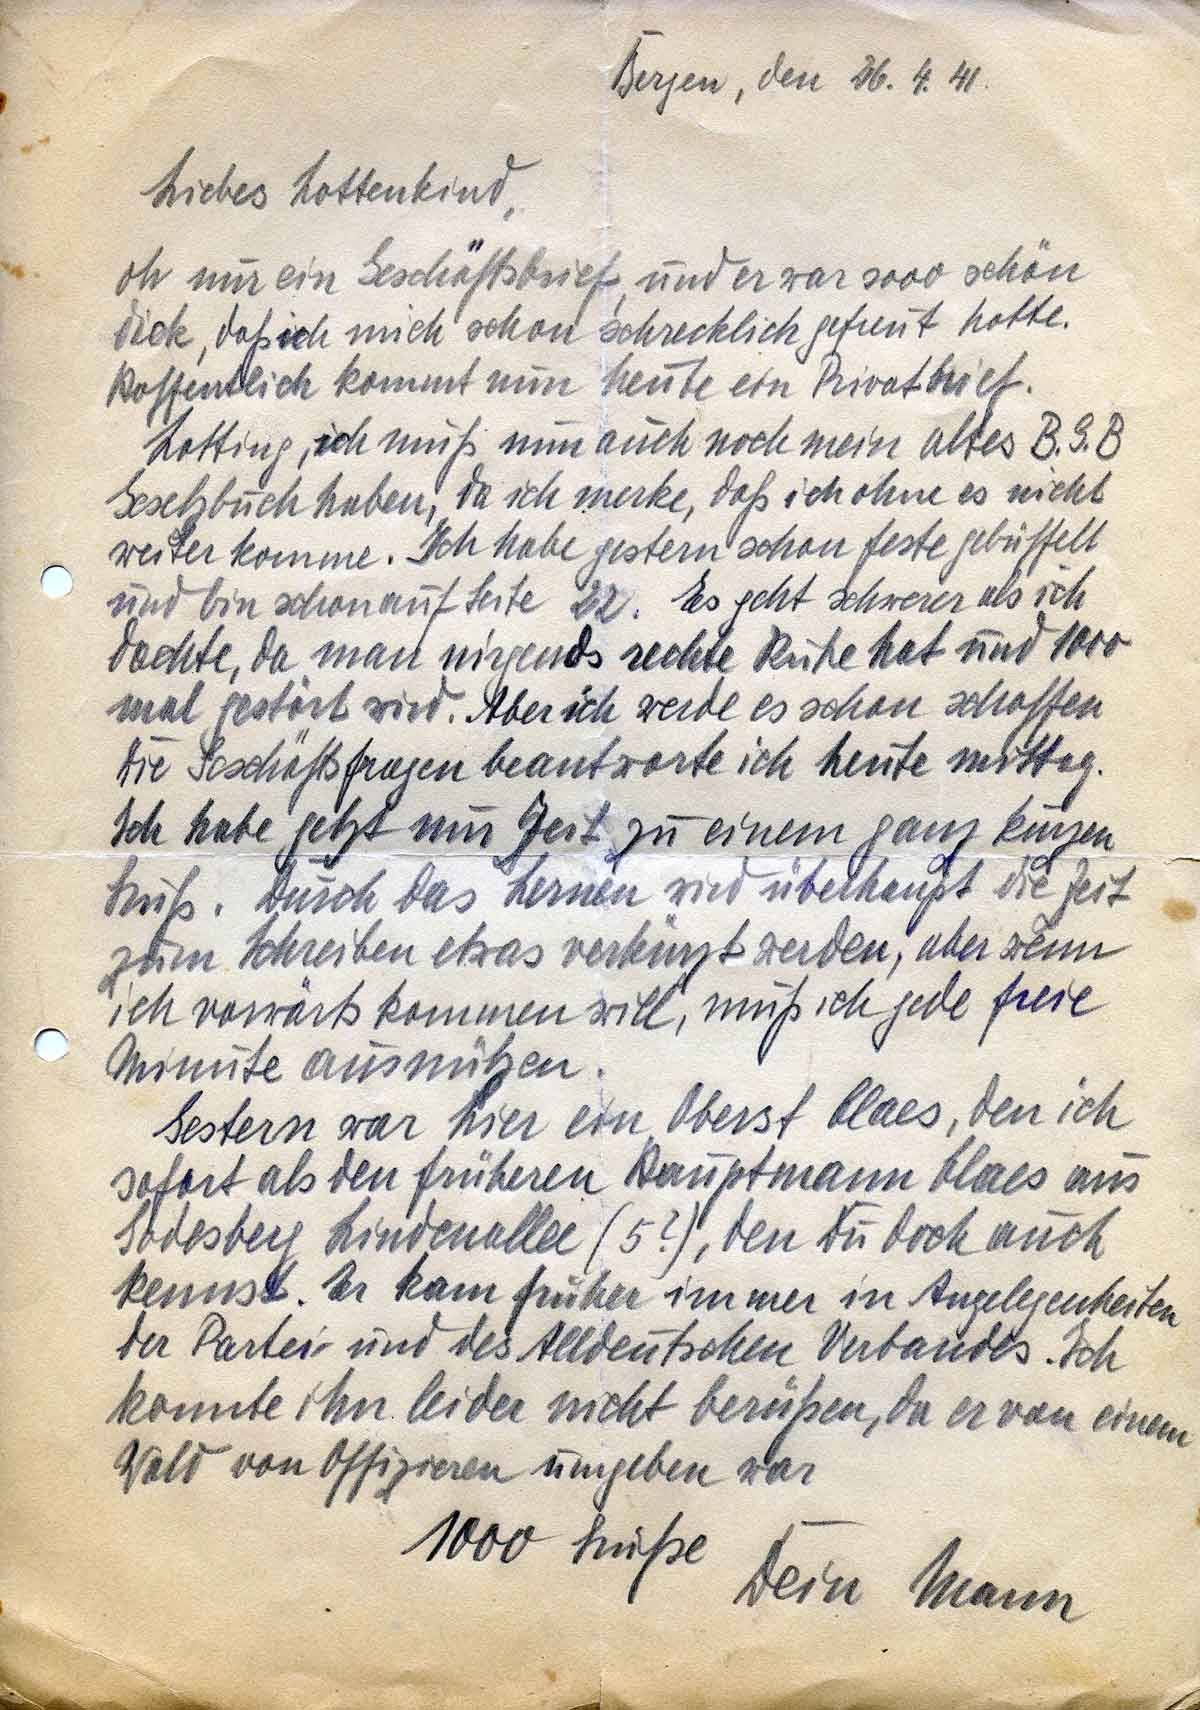 Bergen, den 26. 4. 41.
Liebes Lottenkind,
oh nur ein Geschäftsbrief, und er war sooo schön
dick, daß ich mich schon schrecklich gefreut hatte.
Hoffentlich kommt nun heute ein Privatbrief.
Lotting, ich muß nun auch noch mein altes B.G.B
Gesetzbuch haben, da ich merke, daß ich ohne es nicht
weiter komme. Ich habe gestern schon feste gebüffelt
und bin schon auf Seite 22. Es geht schwerer als ich
dachte, da man nirgends rechte Ruhe hat und 1000
mal gestört wird. Aber ich werde es schon schaffen
Die Geschäftsfragen beantworte ich heute mittag.
Ich habe jetzt nur Zeit zu einem ganz kurzen
Gruß. Durch das Lernen wird überhaupt die Zeit
zum Schreiben etwas verkürzt werden, aber wenn
ich vorwärts kommen will, muß ich jede freie
Minute ausnützen.
Gestern war hier ein Oberst Claes, den ich
sofort als den früheren Hauptmann Claes aus
Godesberg Lindenallee (5?), den Du doch auch
kennst. Er kam früher immer in Angelegenheiten
der Partei und des Alldeutschen Verbandes. Ich
konnte ihn leider nicht berüßen, da er von einem
Wald von Offizieren umgeben war
1000 Grüße
Dein Mann